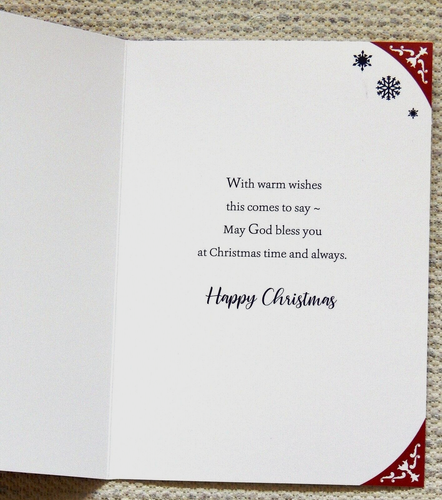 With warm wishes
this comes to say ~
May God bless you
at Christmas time and always.
Happy Christmas